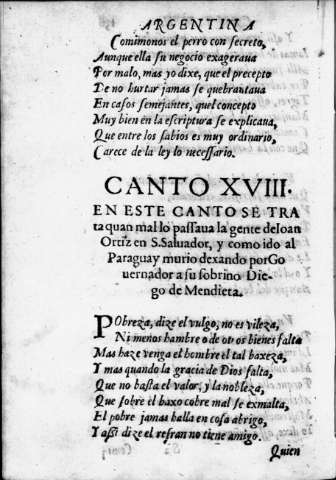 ARGENTINA
Comimonos el perro con secreto,
Aunque ella su negocio exageraua
Por malo, mas yo dixe, que el precepto
De no hurtar jamas se quebrantaua
En casos semejantes, quel concepto
Muy bien en la escriptura se explicaua,
Que entre los sabios es muy ordinario,
Carece de la ley lo necessario.
CANTO XVIII.
EN ESTE CANTO SE TRA
ta quan mal lo passaua la gente de Ioan
Ortiz en S. Saluador, y como ido al
Paraguay murio dexando por Go
uernador a su sobrino Die-
go de Mendieta.
POBreza, dize el vulgo, no es vileza,
Ni menos hambre o de otros bienes falta
Mas haze venga el hombre el tal baxeza,
Y mas quando la gracia de Dios falta,
Que no basta el valor, y la nobleza,
Que sobre el baxo cobre mal se exmalta,
El pobre jamas halla en cosa abrigo,
Y assi dize el refran no tiene amigo.
Quien